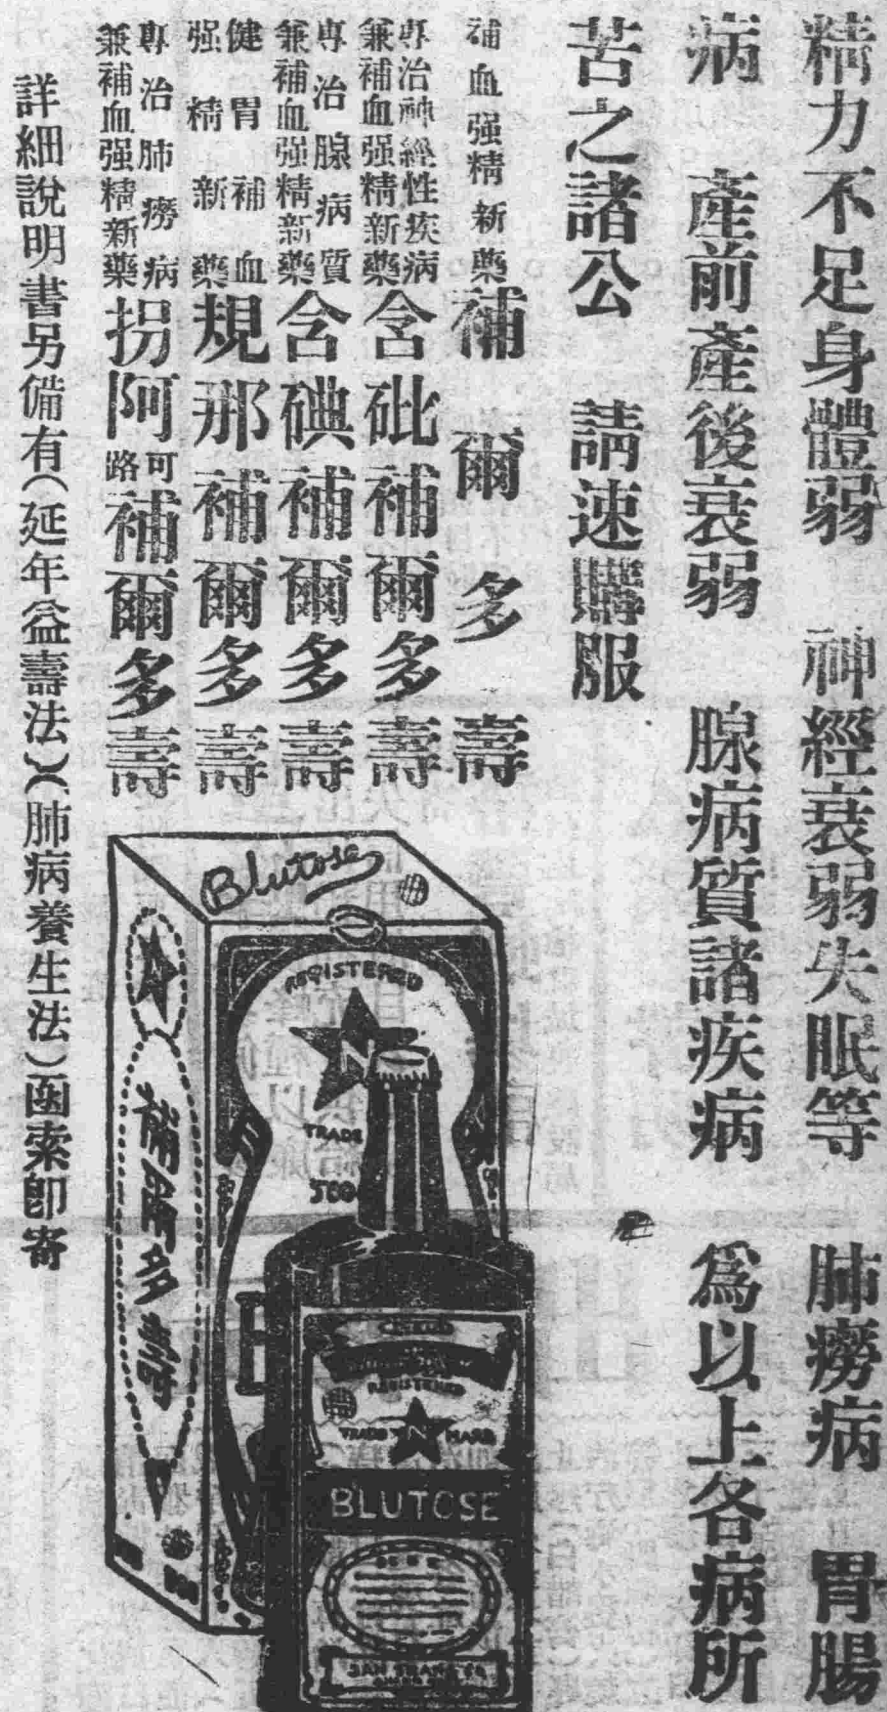 精力不足身體弱 神經衰弱失眠等 肺癆病 胃腸
病 產前產後衰弱 腺病質諸疾病 爲以上各病所
苦之諸公 請速購服
補血强精新藥 補爾多壽
專治神經性疾病
兼補血强精新藥 含砒補爾多壽
專治腺病質
兼補血强精新藥 含碘補爾多壽
健胃補血
强精新藥 規那補爾多壽
專治肺癆病
兼補血强精新藥 拐阿可路補爾多壽
詳細說明書另備有(延年益壽法)(肺病養生法)函索卽寄
Blutose
REGISTERED
N
TRADE
補爾多壽
REGISTERED
TRADE N MARK
BLUTOSE